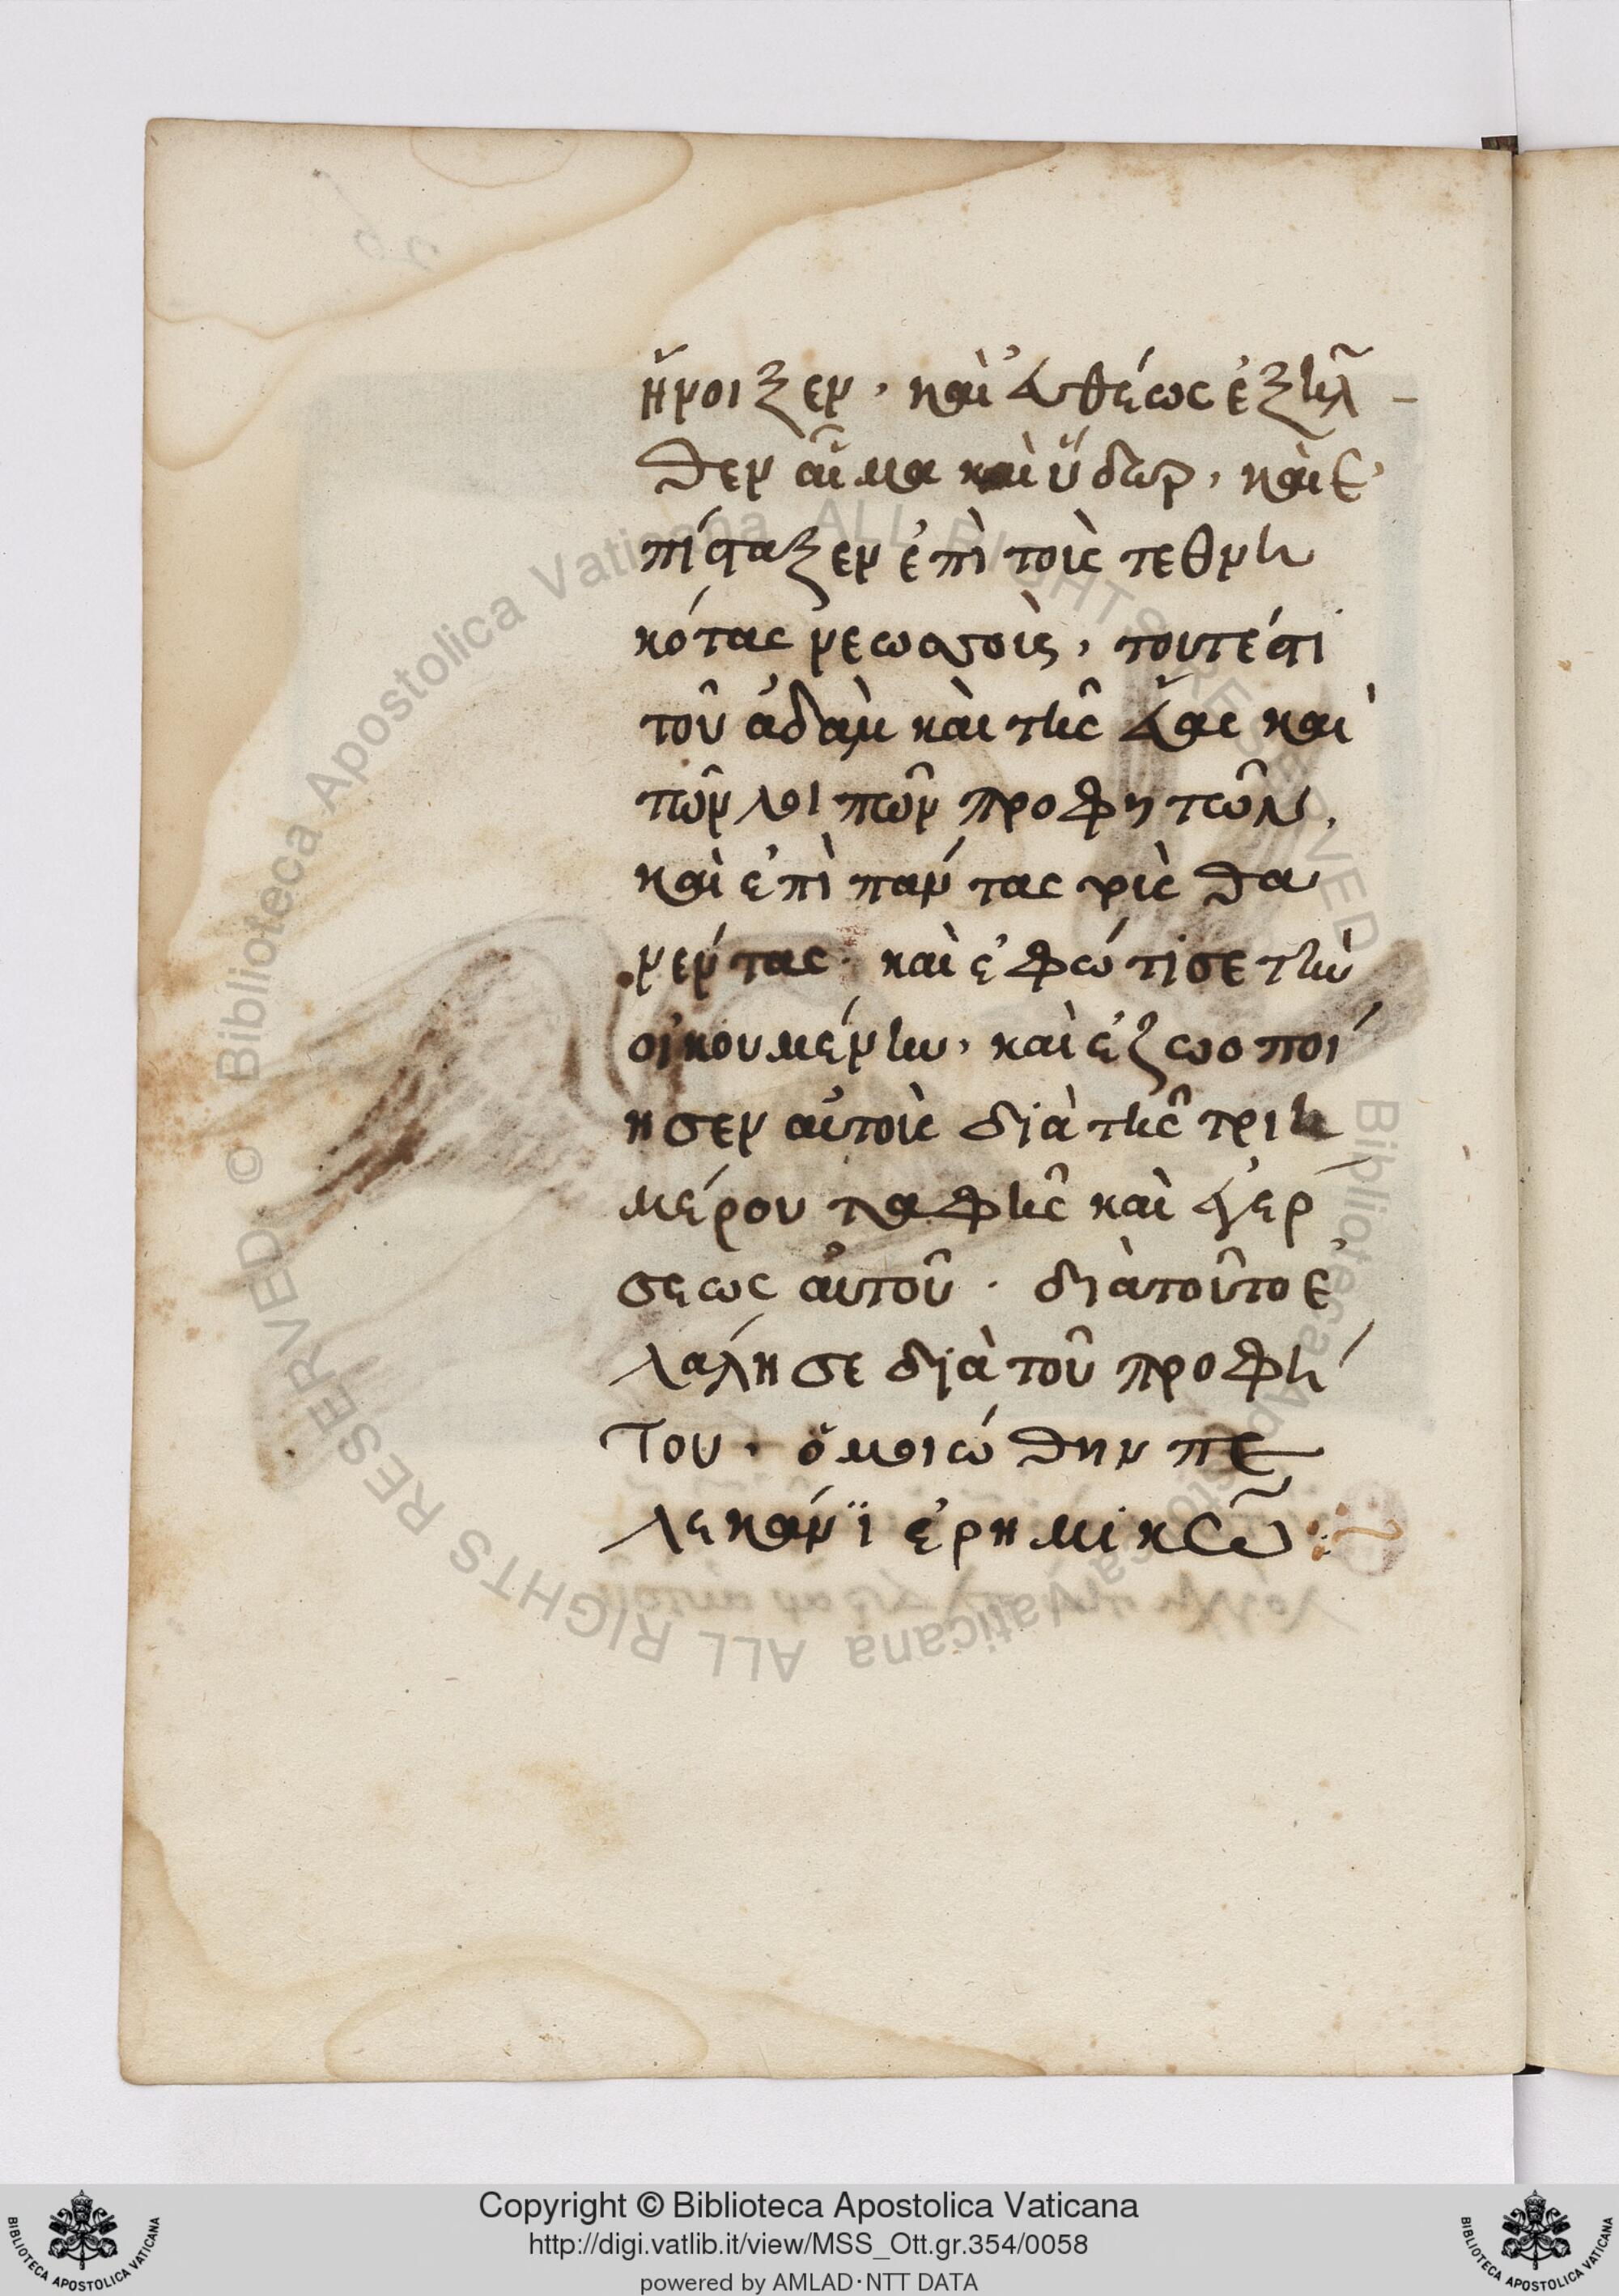 ἤνοιξεν, καὶ εὐθέως ἐξῆλ
θεν αἷμα καὶ ὕδωρ, καὶ ἐ
πίσταξεν ἐπὶ τοὺς τεθνη
κότας νεωσσοὺς, τουτέστι
τοῦ ἀδὰμ καὶ τῆς εὔας καὶ
τῶν λοιπῶν προφητῶν,
καὶ ἐπὶ πάντας τοὺς θα
νέντας· καὶ ἐφώτισε τὴν
οἰκουμένην, καὶ ἐζωοποί
ησεν αὐτοὺς διὰ τῆς τριη
μέρου ταφῆς καὶ ἐγέρ
σεως αὐτοῦ · διὰ τοῦτο ἐ
λάλησε διὰ τοῦ προφή
του · ὅμοιώθην πε
λεκάνϊ ἐρημικῶ :~
© Biblioteca Apostolica Vaticana ALL RIGHTS RESERVED
© Biblioteca Apostolica Vaticana ALL RIGHTS RESERVED
Copyright © Biblioteca Apostolica Vaticana
http://digi.vatlib.it/view/MSS_Ott.gr.354/0058
powered by AMLAD·NTT DATA
BIBLIOTECA APOSTOLICA VATICANA
BIBLIOTECA APOSTOLICA VATICANA